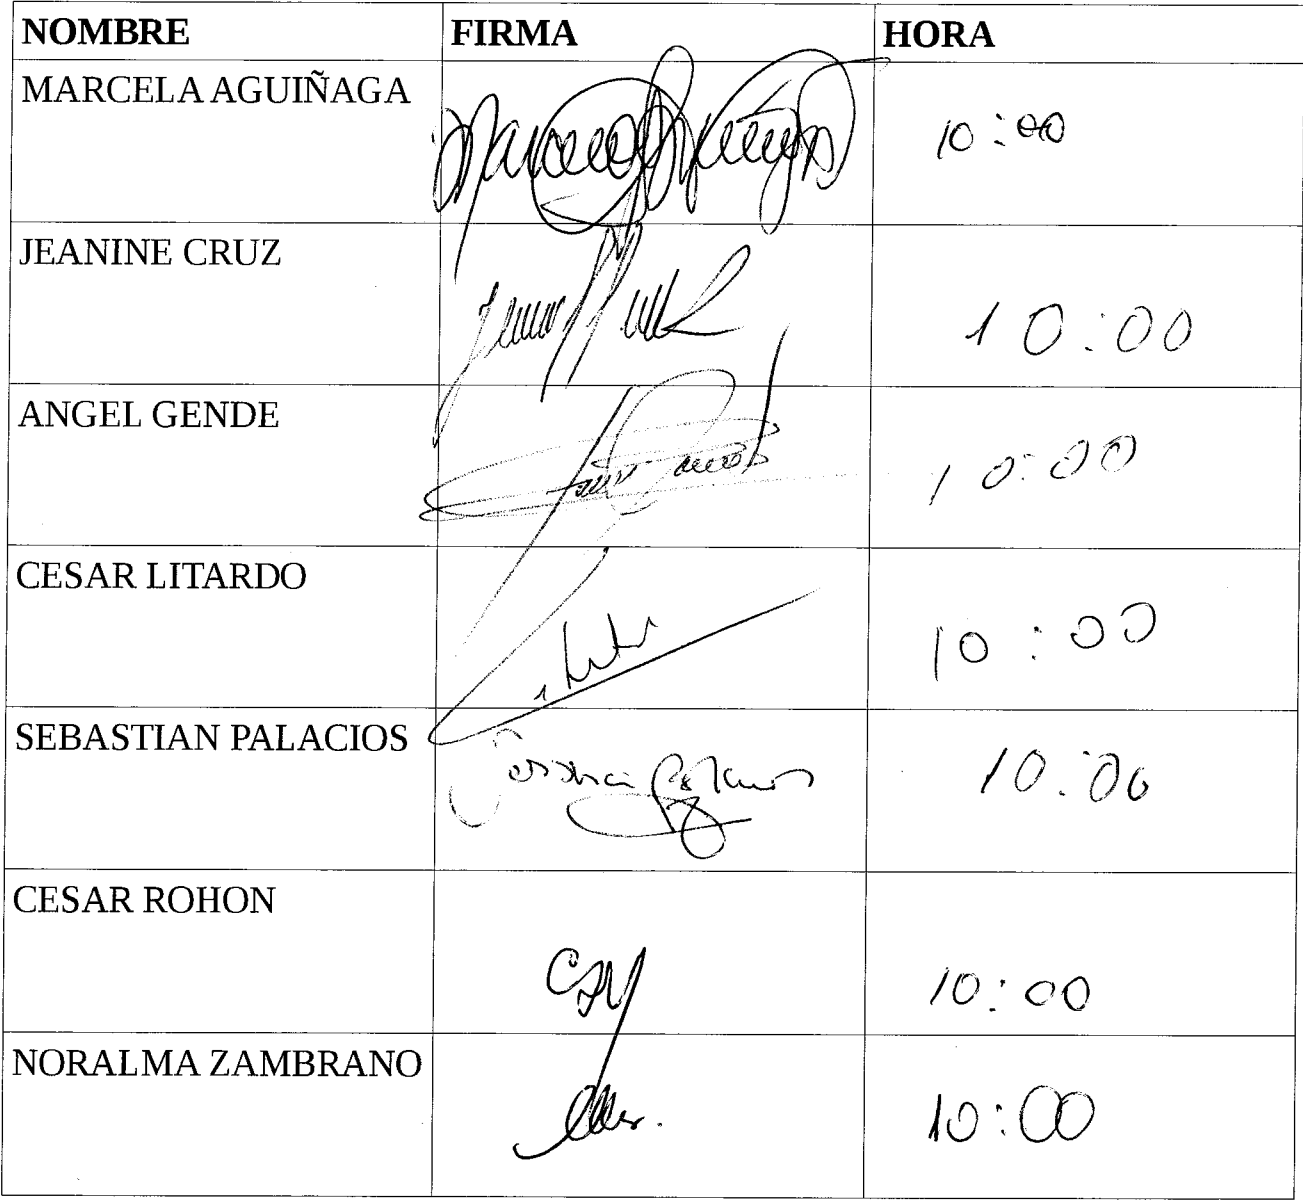 NOMBRE FIRMA HORA
MARCELA AGUIÑAGA 10:00
JEANINE CRUZ 10:00
ANGEL GENDE 10:00
CESAR LITARDO 10:00
SEBASTIAN PALACIOS 10:00
CESAR ROHON 10:00
NORALMA ZAMBRANO 10:00